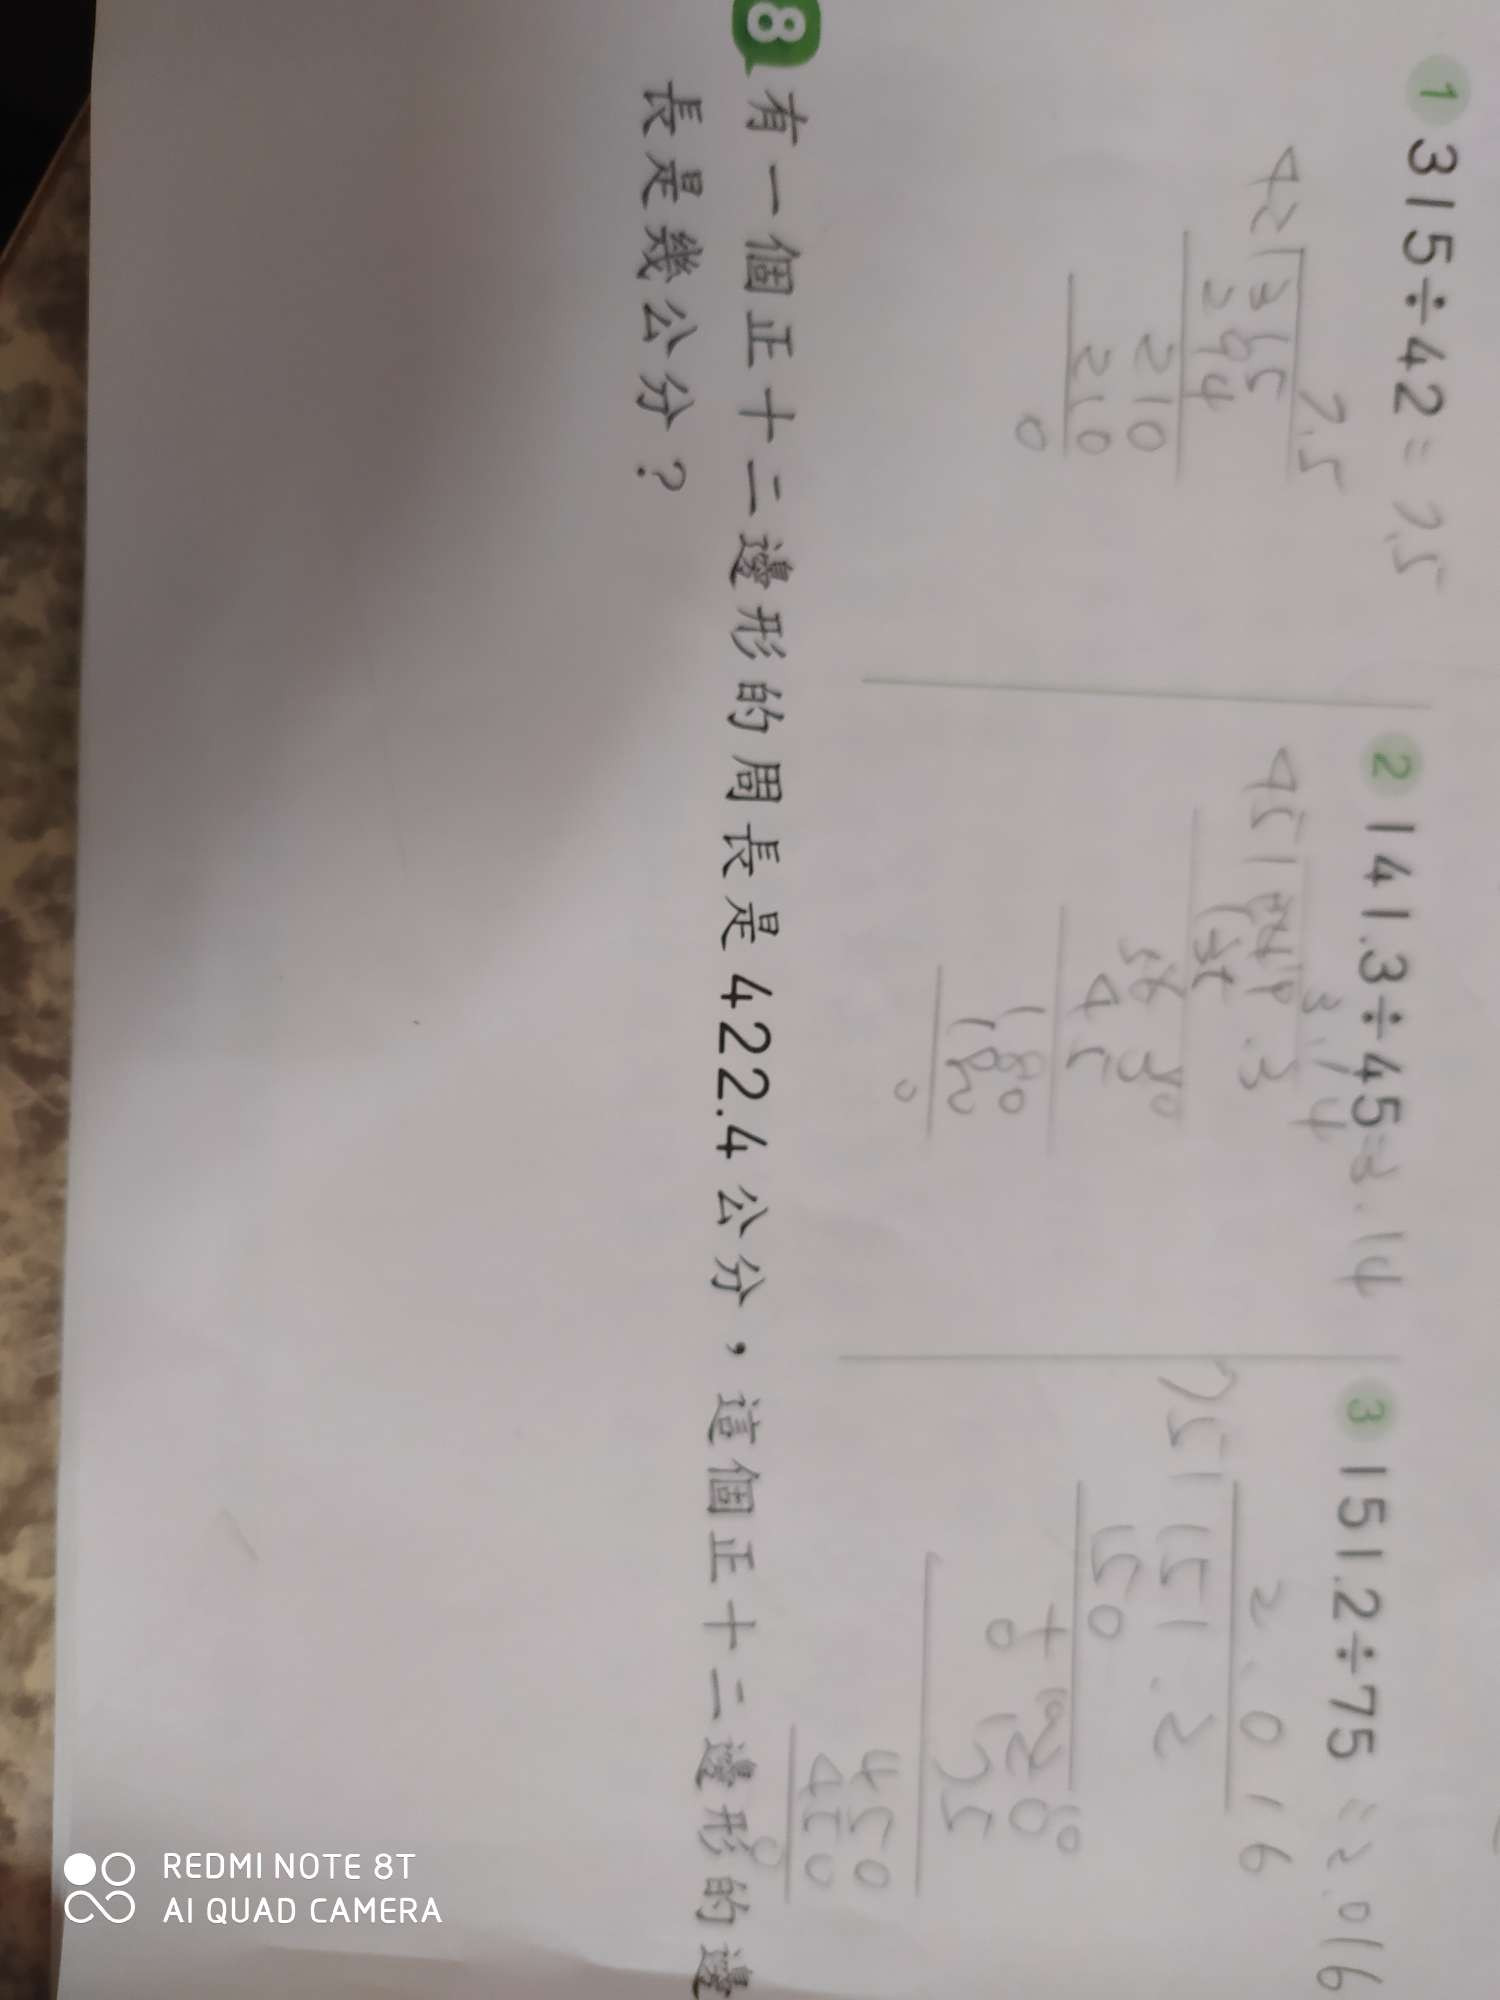 1 315÷42=7.5
7.5
42 315
294
210
210
0
2 141.3÷45=3.14
3.14
45 141.3
135
63
45
180
180
0
3 151.2÷75=2.016
2.016
75 151.2
150
120
75
450
450
0
8 有一個正十二邊形的周長是422.4公分，這個正十二邊形的邊
長是幾公分？
REDMI NOTE 8T
AI QUAD CAMERA